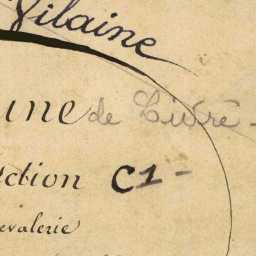 Vilaine
une de Livré -
ction C1 -
evalerie